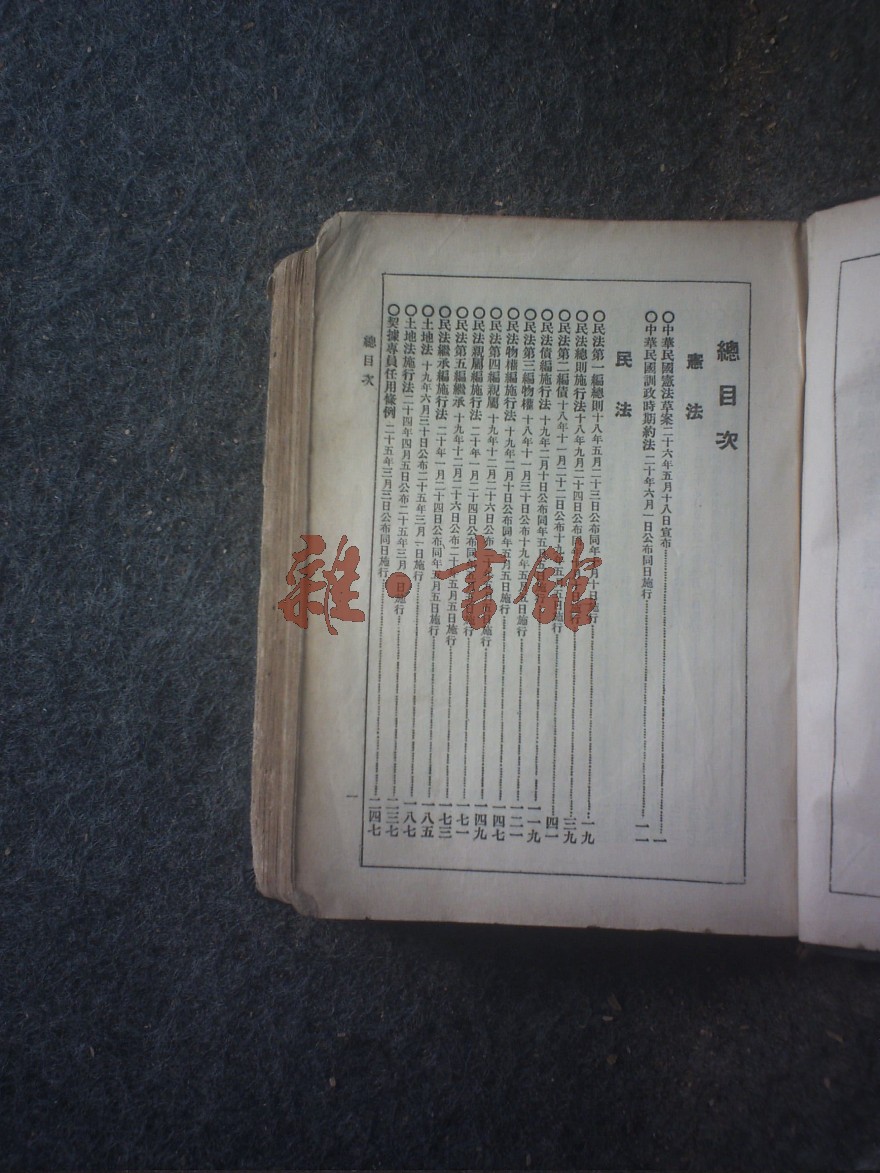 總目次
憲法
〇中華民國憲法草案二十六年五月十八日宣布……一
〇中華民國訓政時期約法二十年六月一日公布同日施行……一二
民法
〇民法第一編總則十八年五月二十三日公布同年 月十日施行……一九
〇民法總則施行法十八年九月二十四日公布同……三九
〇民法第二編債十八年十一月二十二日公布十九年五月五日施行……四一
〇民法債編施行法十九年二月十日公布同年五月五日施行……一一九
〇民法第三編物權十八年十一月三十日公布十九年五月五日施行……一二一
〇民法物權編施行法十九年二月十日公布同年五月五日施行……一四七
〇民法第四編親屬十九年十二月二十六日公布 施行……一四九
〇民法親屬編施行法二十年一月二十四日公布同 施行……一七一
〇民法第五編繼承十九年十二月二十六日公布二十年五月五日施行……一七三
〇民法繼承編施行法二十年一月二十四日公布同年五月五日施行……一八五
〇土地法十九年六月三十日公布二十五年三月一日施行……一八七
〇土地法施行法二十四年四月五日公布二十五年三月一日施行……二三七
〇契據專員任用條例二十五年三月三日公布同日施行……二四七
總目次
一
雜·書館